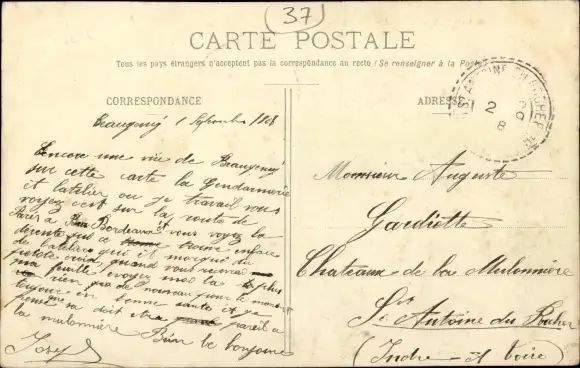 37
CARTE POSTALE
Tous les pays étrangers n'acceptent pas la correspondance au recto (Se renseigner à la Poste)
CORRESPONDANCE
ADRESSE
Beaugency 1 Septembre
Encore une vue de Beaugency
sur cette carte la Gendarmerie
et latelier ou je travail vous
voyez cest sur la route de
Paris a Bordeaux et vous voyez la
desente qui ce trouve enface
de latelier qui et morqué du
petite croix, quand vous receverai
ma feuille envoyer mec la
rien de nouveau pour le moment
toujour en bonne santé et je
pense que sa doit etre pareil a
la mulonnière Bien le bonjour
Josef
Monsieur Auguste
Gardiette
Chateaux de la Mulonnière
St Antoine du Rocher
(Indre et Loire)